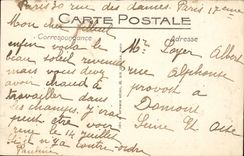 Paris 30 rue des dames. Paris 17eme
Mon cher
CARTE POSTALE
Correspondance
Adresse
enfin voila le
beau soleil revenu
mais vous devez
avoir chaud a
travailler dans
les champs. j'irai
peut être vous
voir le 14 juillet
s'il n'y a contre-ordre
Mr Loyer Albert
rue alphonse
prevost à
Domont
Seine et Oise